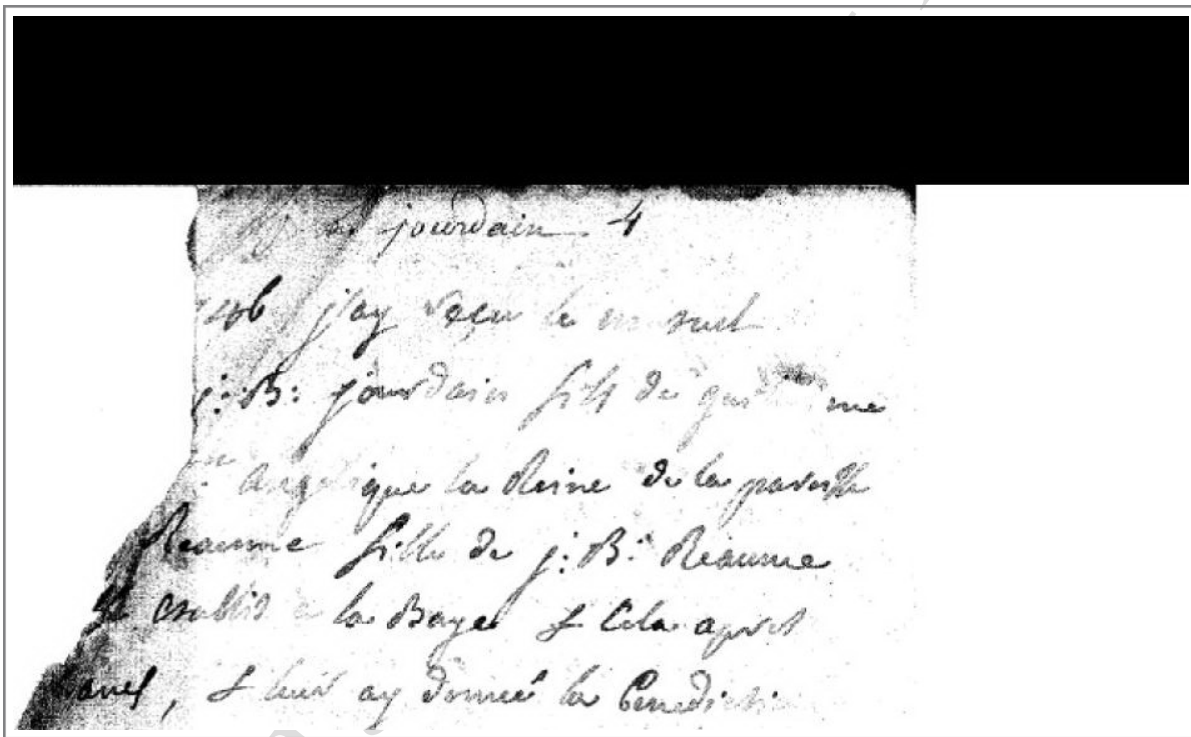 jourdain 4
j'ay reçu le m suel
j: B: jourdain fils de gui me
Angelique la Reine de la paroisse
Reaume fille de j: B: Reaume
establis a la Baye & cela apres
& leur ay donné la Benedicti